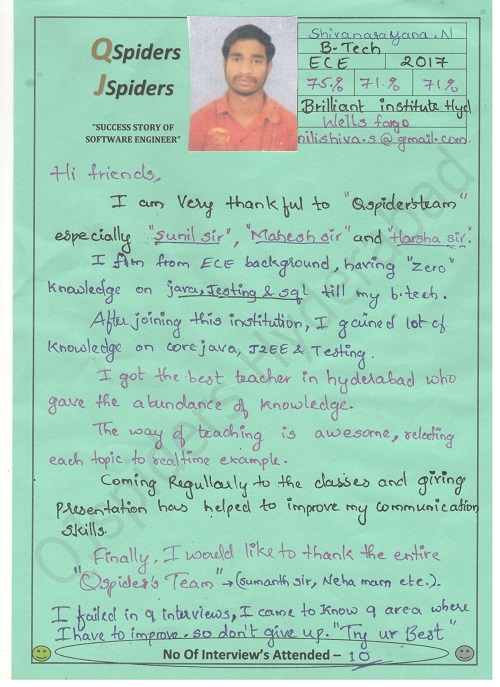 QSpiders
JSpiders
"SUCCESS STORY OF
SOFTWARE ENGINEER"
Shivanarayana.N
B-Tech
ECE 2017
75.% 71.% 71%
Brilliant institute Hyd
Wells fargo
nilishiva.s@gmail.com.
Hi friends,
I am Very thankful to "Qspidersteam"
especially "sunil sir", "Mahesh sir" and "Harsha sir".
I Am from ECE background, having "Zero"
Knowledge on java, Testing & sql till my b.tech.
After joining this institution, I gained lot of
Knowledge on core java, J2EE & Testing.
I got the best teacher in hyderabad who
gave the abundance of Knowledge.
The way of teaching is awesome, relating
each topic to realtime example.
Coming Regullarly to the classes and giving
Presentation has helped to improve my communication
skills.
Finally, I would like to thank the entire
"Qspider's Team" → (sumanth sir, Neha mam etc.).
I failed in 9 interviews, I came to Know 9 area where
I have to improve. so don't give up. "Try ur Best"
No Of Interview's Attended – 10
QJspiders Hyderabad